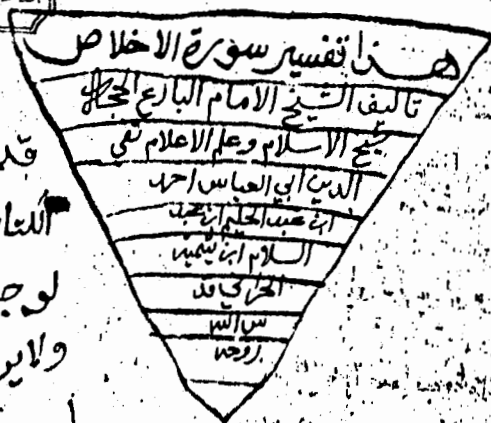 هذا تفسير سورة الاخلاص
تاليف الشيخ الامام البارع الحجة
شيخ الاسلام وعلم الاعلام تقي
الدين ابي العباس احمد
ابن عبد الحليم ابن عبد
السلام ابن تيميه
الحراني قد
س الله
روحه
لوجـ
ولاير